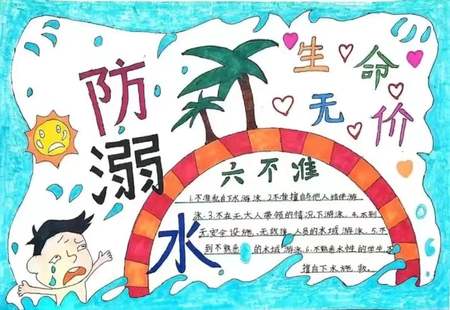 防溺水
生命
无价
六不准
1.不准私自下水游泳.2.不准擅自与他人结伴游
泳.3.不在无大人带领的情况下游泳.4.不到
无安全设施、无救援人员的水域游泳.5.不
到不熟悉的水域游泳.6.不熟悉水性的学生不
擅自下水施救.